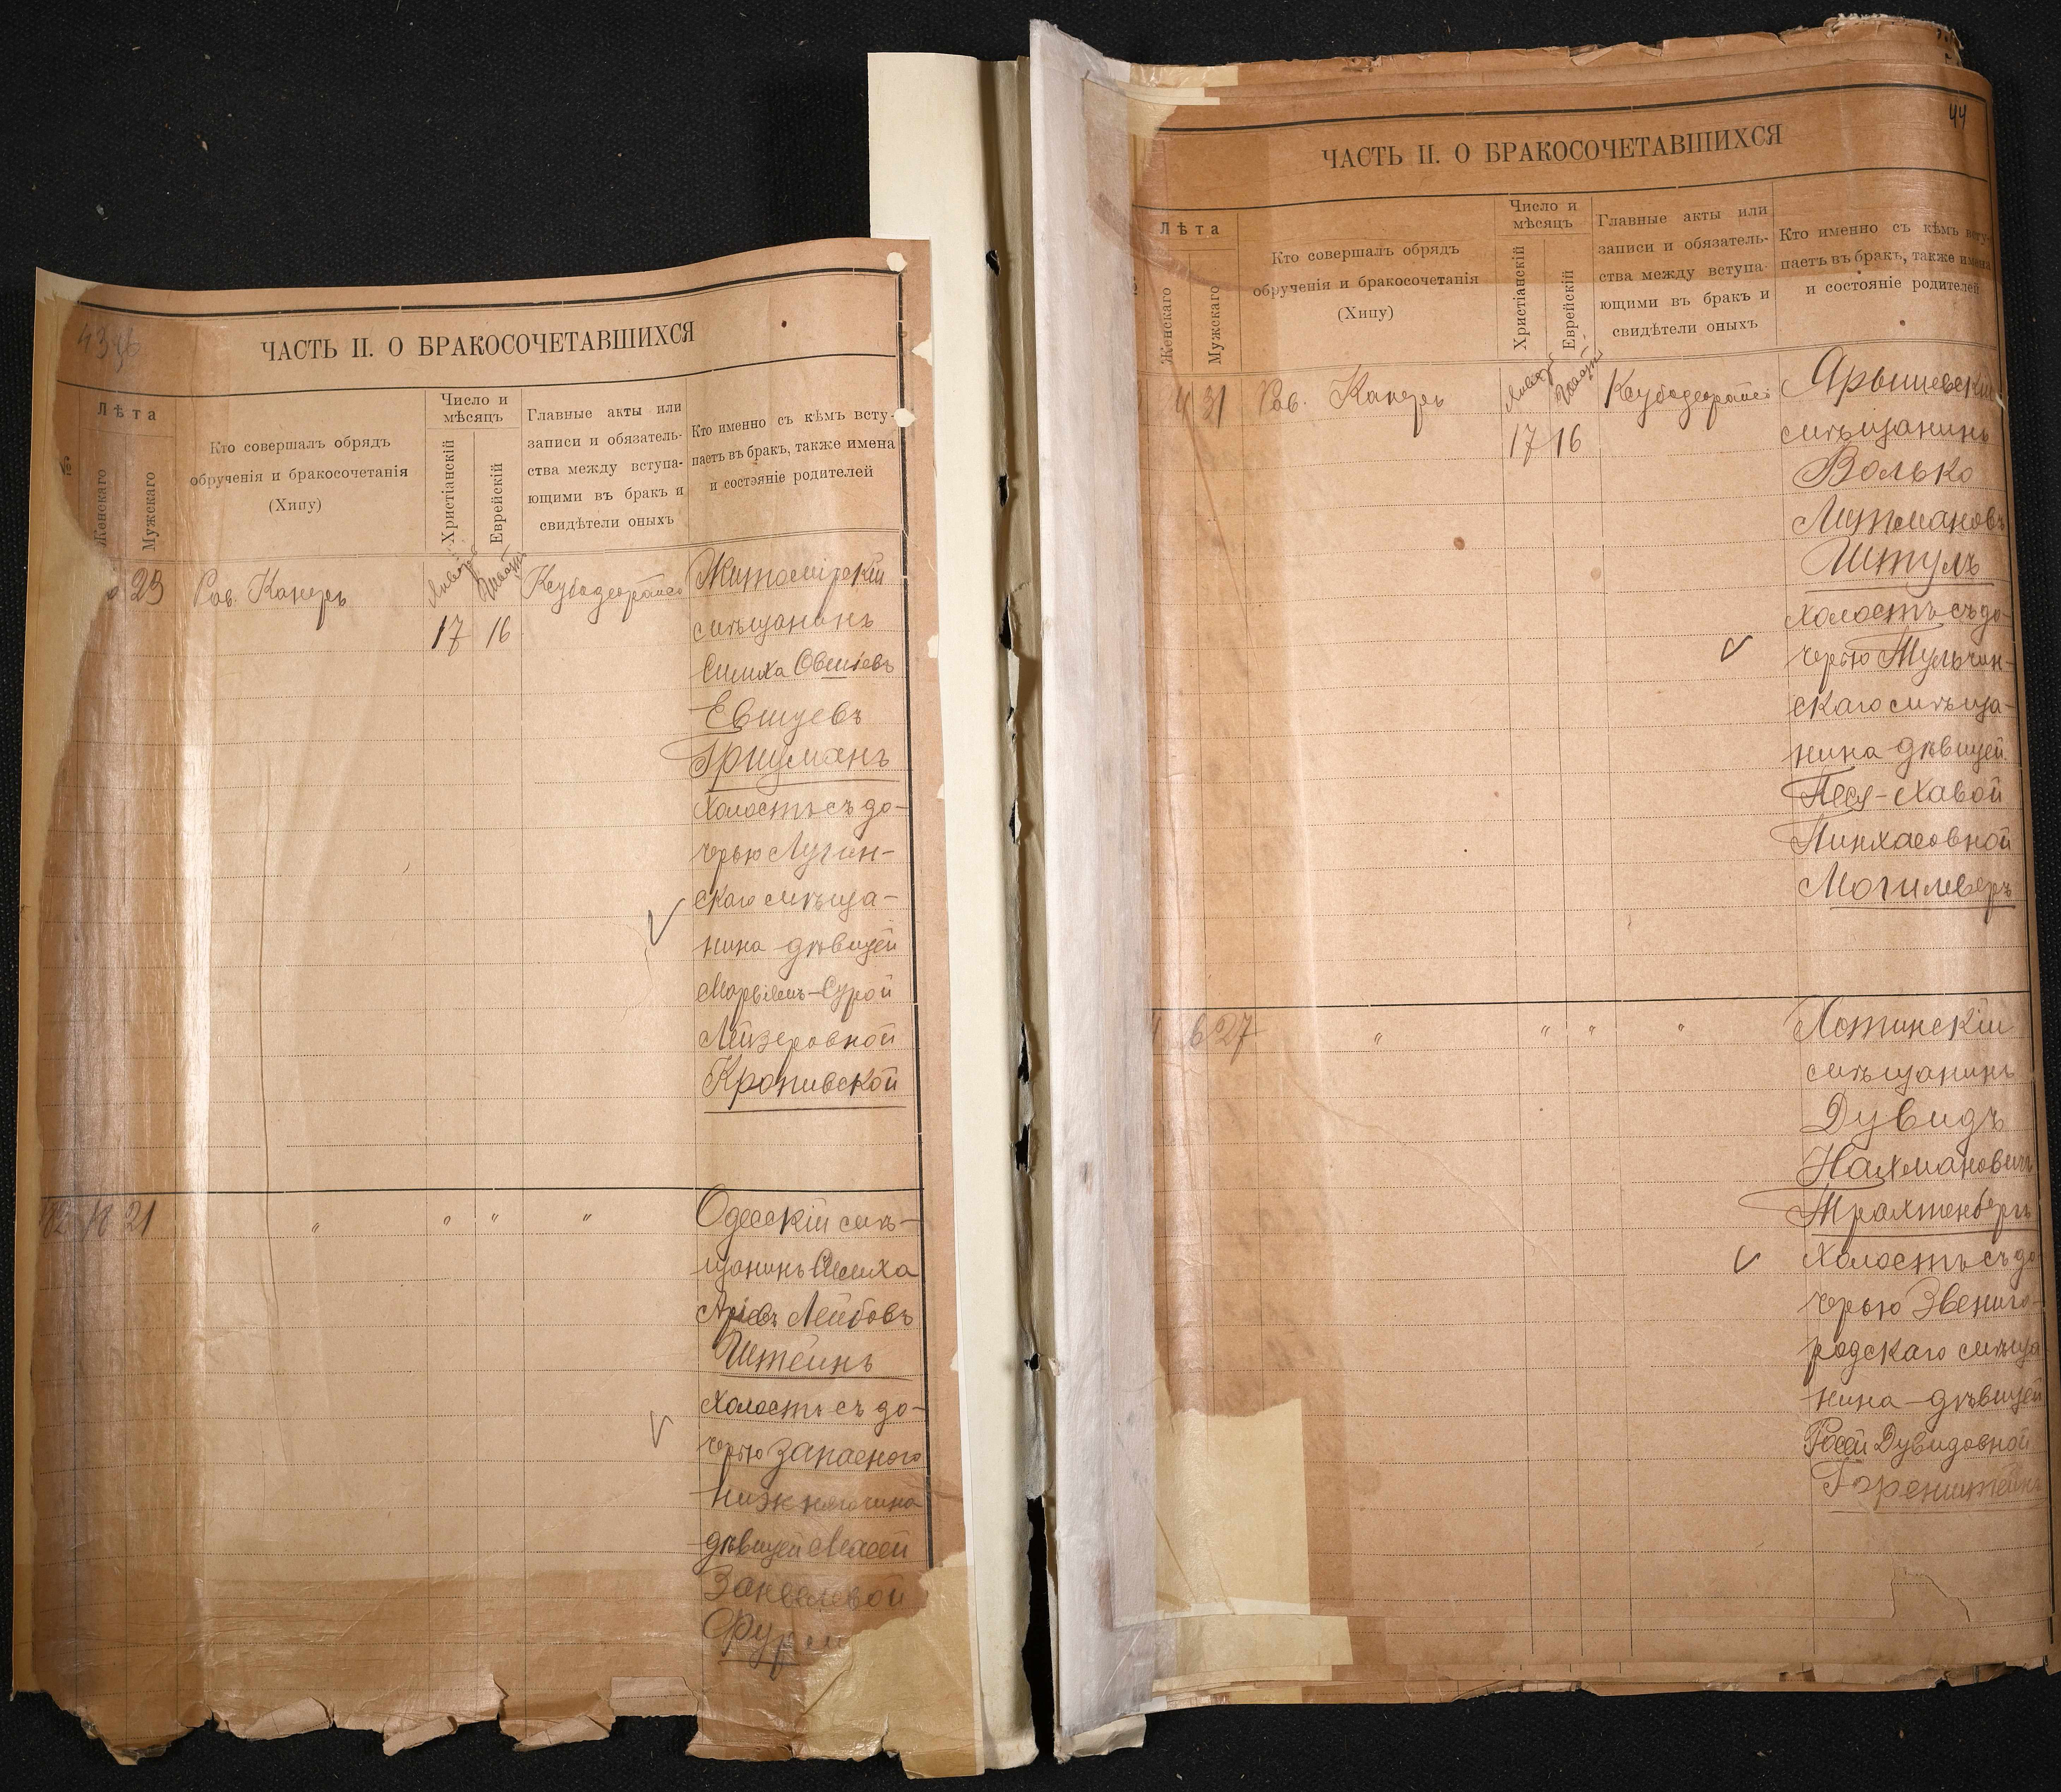 ЧАСТЬ II. О БРАКОСОЧЕТАВШИХСЯ
№
Лѣта
Женскаго
Мужскаго
Кто совершалъ обрядъ
обрученія и бракосочетанія
(Хипу)
Число и
мѣсяцъ
Христіанскій
Еврейскій
Главные акты или
записи и обязатель-
ства между вступа-
ющими въ бракъ и
свидѣтели оныхъ
Кто именно съ кѣмъ всту-
паетъ въ бракъ, также имена
и состояніе родителей
23
Рав. Канеръ
Январ
Шватъ
17 16
Житомірскій
мѣщанинъ
Симха Овшіевъ
Евшуевъ
Гришманъ
холостъ съ до-
черью Лугин-
скаго мѣща-
нина дѣвицей
Марьямъ-Сурой
Лейзеровной
Кропивской
18 21
" " " "
Одесскій мѣ-
щанинъ Симха
Аріевъ Лейбовъ
Штейнъ
холостъ съ до-
черью запаснаго
нижняго чина
дѣвицей
Фурм
44
ЧАСТЬ II. О БРАКОСОЧЕТАВШИХСЯ
Лѣта
Женскаго
Мужскаго
Кто совершалъ обрядъ
обрученія и бракосочетанія
(Хипу)
Число и
мѣсяцъ
Христіанскій
Еврейскій
Главные акты или
записи и обязатель-
ства между вступа-
ющими въ бракъ и
свидѣтели оныхъ
Кто именно съ кѣмъ всту-
паетъ въ бракъ, также имена
и состояніе родителей
31
Рав. Канеръ
Январ
Шватъ
17 16
Ярышевскій
мѣщанинъ
Волько
Литмановъ
Штулъ
холостъ съ до-
черью Тульчин-
скаго мѣща-
нина дѣвицей
Песя-Хавой
Пинхасовной
Могилверъ
27
" " " "
мѣщанинъ
Дувидъ
Нахмановичъ
Трахтенбергъ
холостъ съ до
черью Звениго-
родскаго мѣща
нина-дѣвицей
Дувидовной
Горенштейнъ